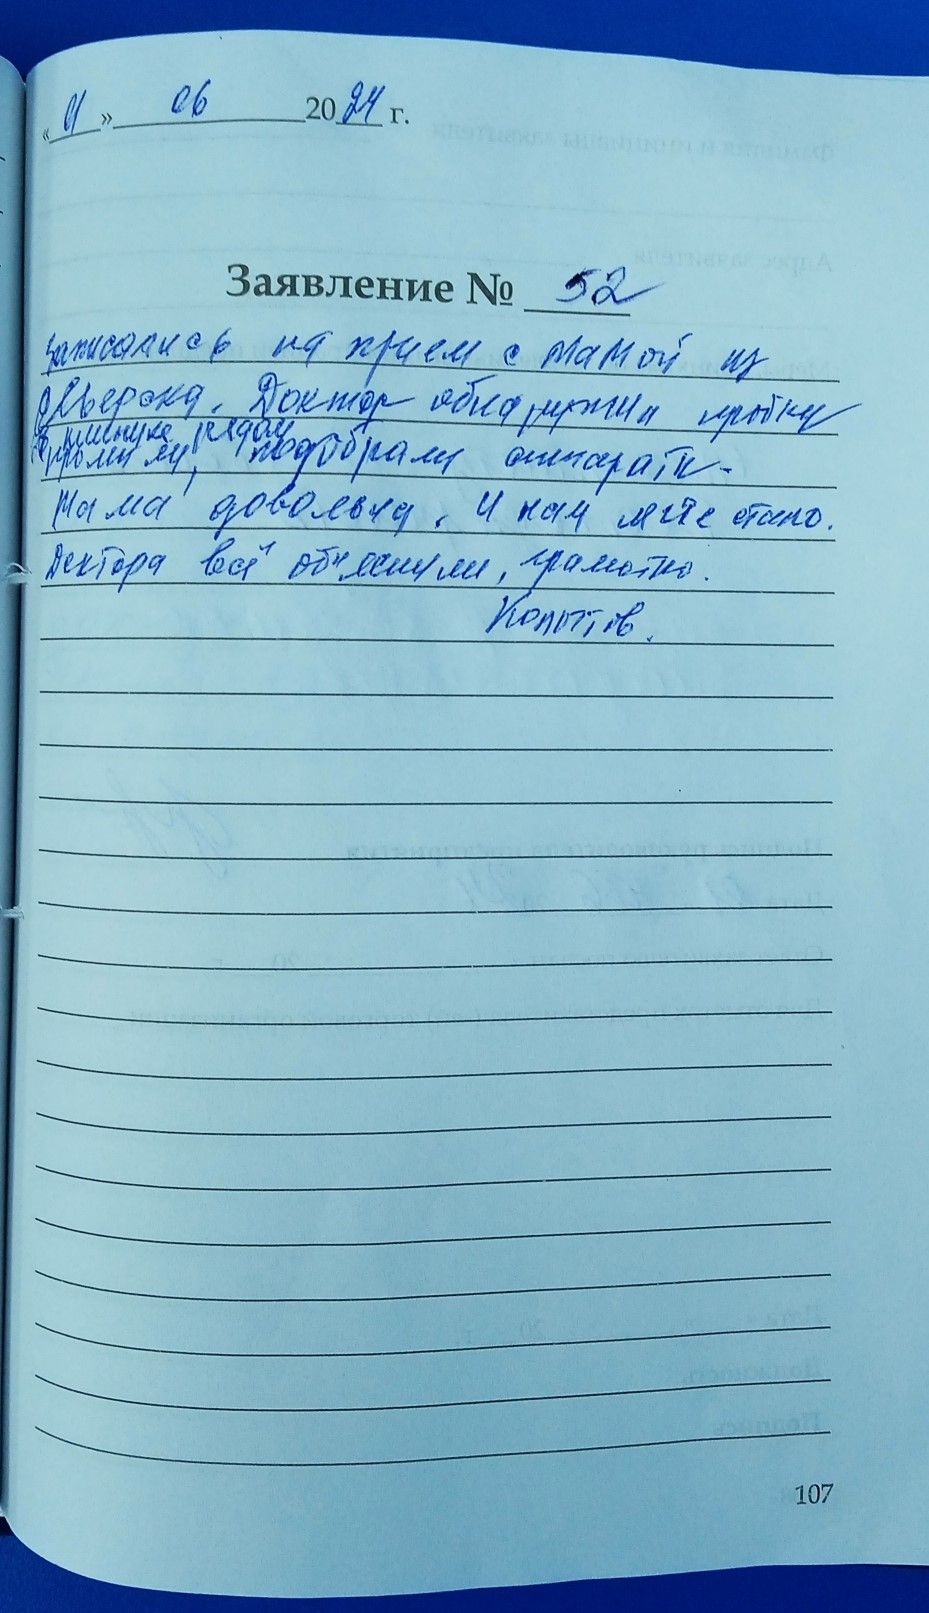 « 11 » 06 2024 г.
Заявление № 52
Записались на прием с мамой из
Северска. Доктор обнаружил пробку
в клинике рядом
промыли, подобрали аппараты.
Мама довольна. И нам легче стало.
Доктора всё объяснили, грамотно.
107